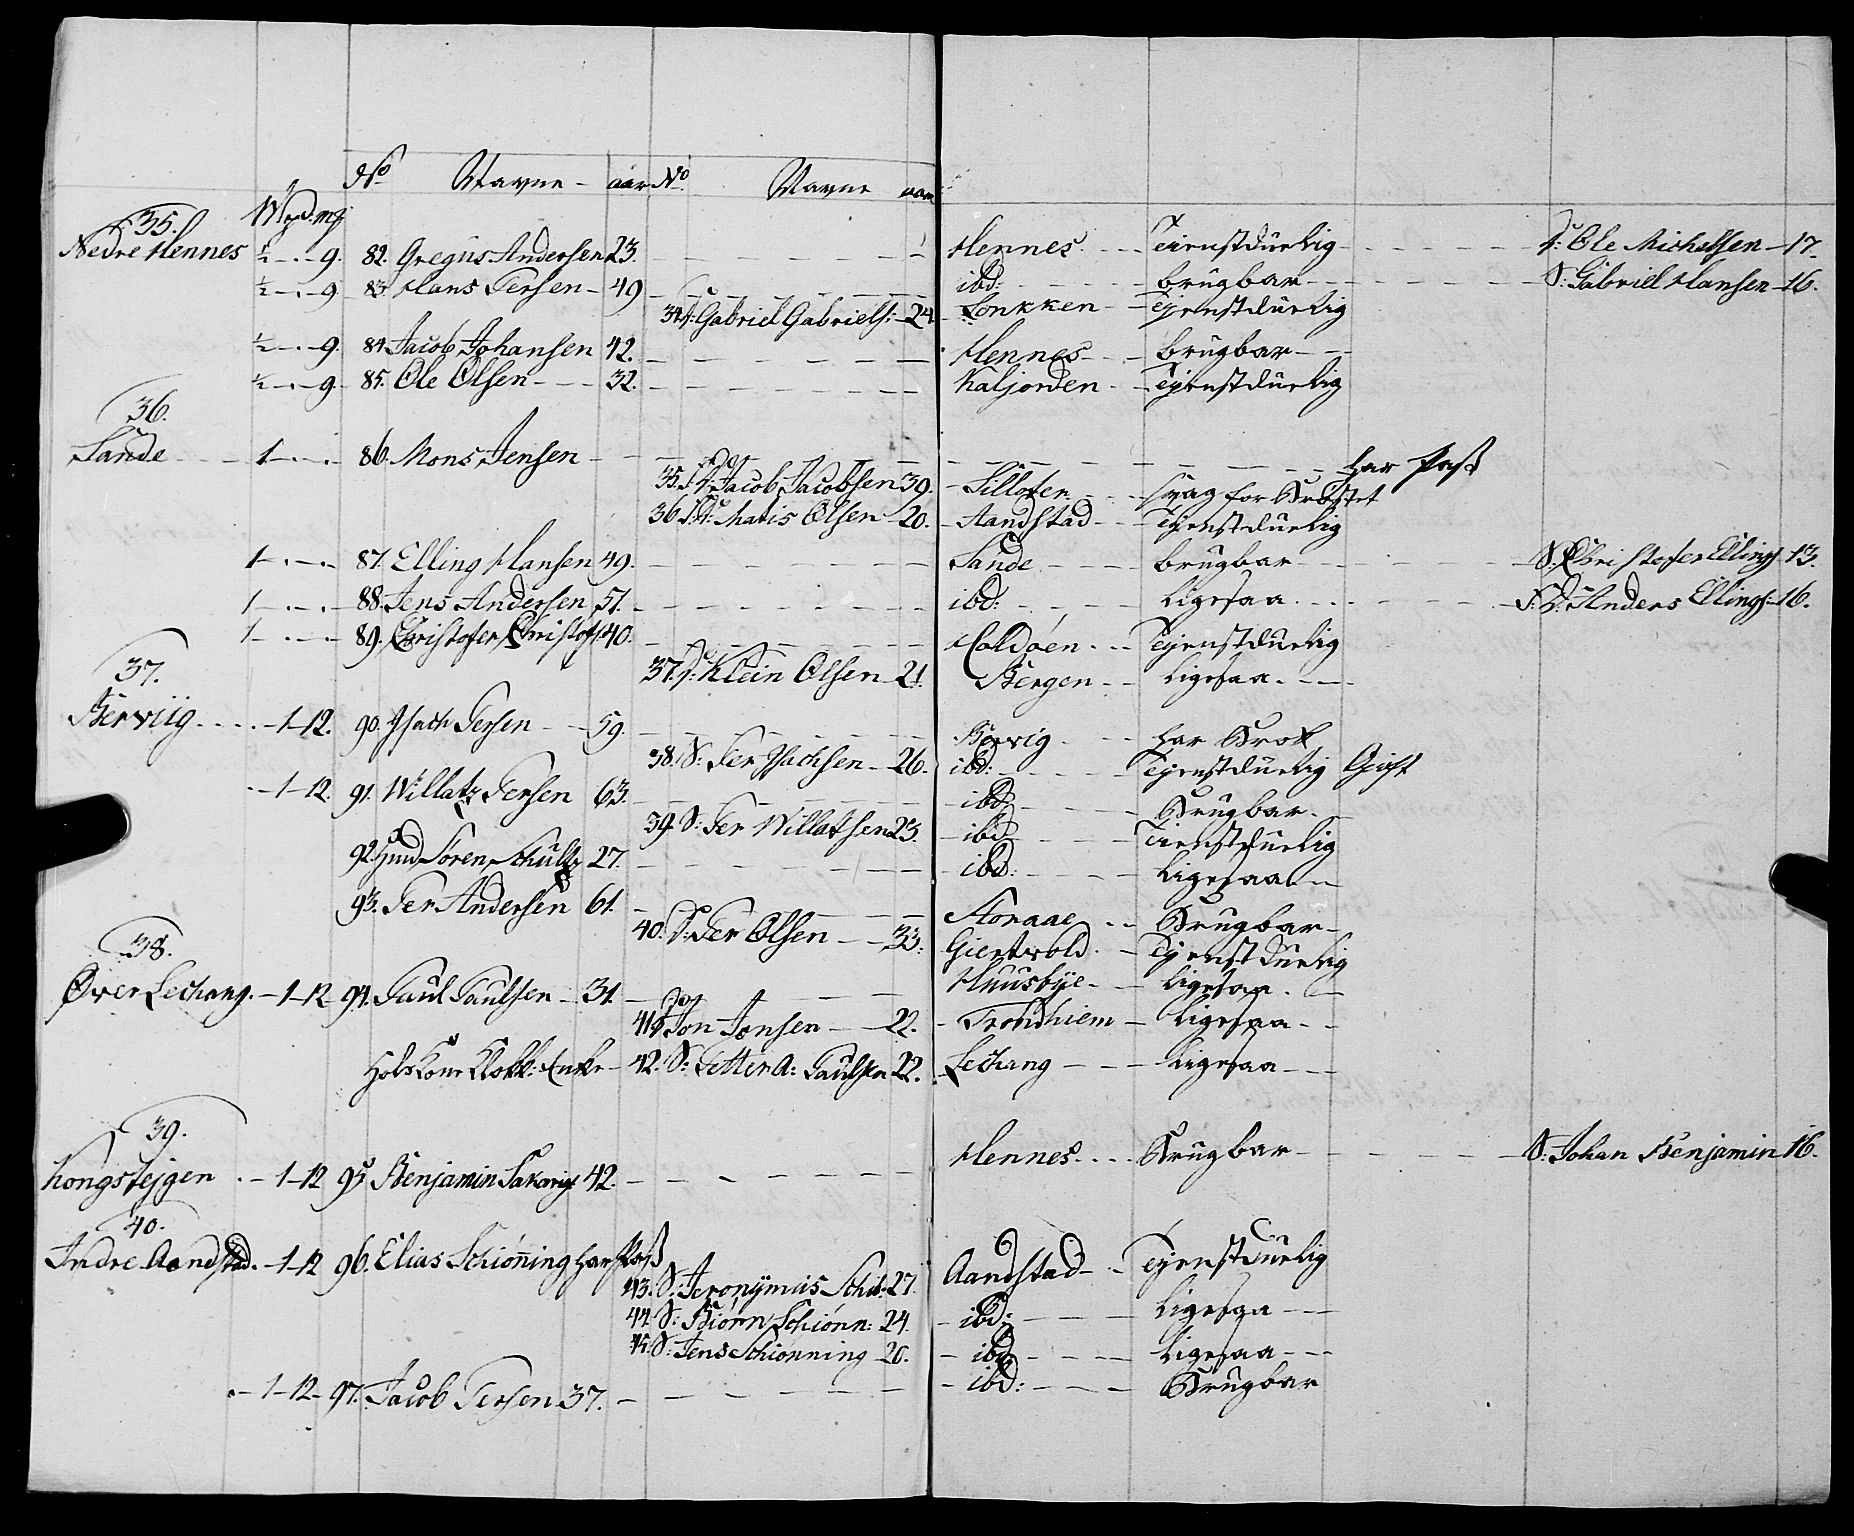 No Navne aar No Navne aar
W pd. mg
35.
Nedre Hennes ½ - . - 9. 82. Gregus Andersen 23. Hennes. Tienstduelig J: Ole Michelsen - 17.
½ - . - 9 83. Hans Persen - 49 ibd: brugbar S: Gabriel Hansen - 16.
34. J: Gabriel Gabriels: - 24. Lonkken Tjenstduelig
½ - . - 9. 84. Jacob Johansen 42. Hennes brugbar
½ - . - 9. 85. Ole Olsen 32. Kaljorden Tjenstduelig
36.
Sande 1 - . - . 86. Mons Jensen har Pass
35. Jacob Jacobsen 39. Silloten Svag for Brøstet
36. Matis Olsen 20. Aandstad Tjenstduelig
1 - . - . 87. Elling Hansen 49. Sande brugbar S. Christofer Ellings 13.
1 - . - . 88. Jens Andersen 51. ibd: ligesaa Anders Ellings: 16.
1 - . - . 89. Christofer Christofs: 40. Holdøen Tjenstduelig
37.
37. J: Klein Olsen 21. Bergen ligesaa
Berviig 1-12. 90. Isach Persen 59. Bervig har Brok
38. S: Per Isachsen 26. ibd: Tjenstduelig Gift
1-12. 91. Willatz Persen 63. ibd Brugbar
39. S: Per Willatsen 23. ibd Tienstduelig
92. Huusmd Søren Schultz 27. ibd: ligesaa
93. Per Andersen 61. Storaae Brugbar
40. Per Olsen 33. Giertvold Tjenstduelig
38.
Øver Lechang. 1-12 94. Paul Paulsen 31. Huusbye ligesaa
41. Jon Jonsen 22. Trondhiem ligesaa
Klokk: Enke 42. S: Petter A: Paulsen 22. Lechang ligesaa
39.
Kongstejgen 1-12 95 Benjamin Sakarias 42. Hennes Brugbar S. Johan Benjamin 16.
40.
Indre Aandstad. 1-12 96. Elias Schiønning har Pass
43. S: Jeronymus Schiø: 27. Aandstad Tjenstduelig
44. S: Biørn Schiønn: 24. ibd: ligesaa
45. S: Jens Schiønning 20. ibd ligesaa
1-12 97. Jacob Persen 37. ibd: Brugbar